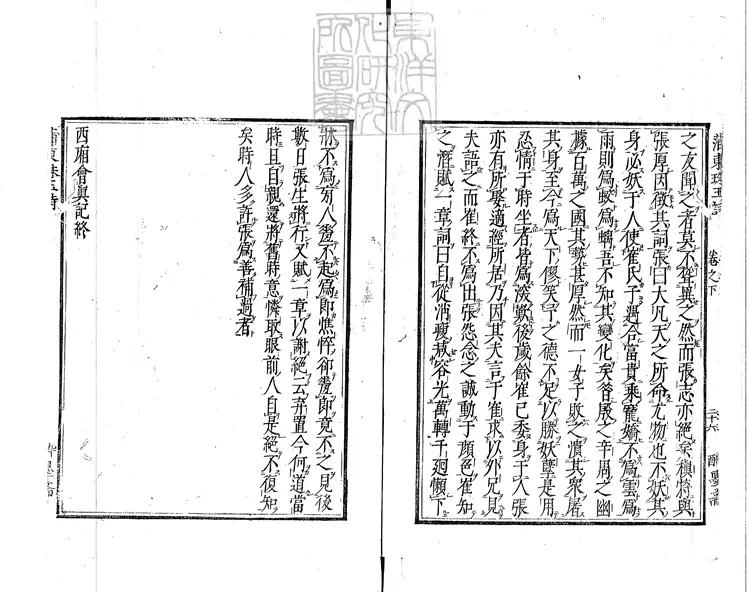 之友聞之者莫不聳異之然而張志亦絕矣稹特與
張厚因徵其詞張曰大凡天之所命尤物也不妖其
身必妖于人使崔氏子遇合富貴乘寵嬌不爲雲爲
雨則爲蛟爲螭吾不知其變化矣昔殷之辛周之幽
據百萬之國其勢甚厚然而一女子敗之潰其衆屠
其身至今爲天下僇笑予之德不足以勝妖孽是用
忍情于時坐者皆爲深歎後歲餘崔已委身于人張
亦有所娶適經所居乃因其夫言于崔求以外兄見
夫語之而崔終不爲出張怨念之誠動于顏色崔知
之潛賦一章詞曰自從消瘦減容光萬轉千廻懶下
牀不爲旁人羞不起爲郎憔悴却羞郎竟不之見後
數日張生將行又賦一章以謝絕云弃置今何道當
時且自親還將舊時意憐取眼前人自是絕不復知
矣時人多許張爲善補過者
西廂會眞記終
卷之下
二十六
東洋文
化研究
所圖書